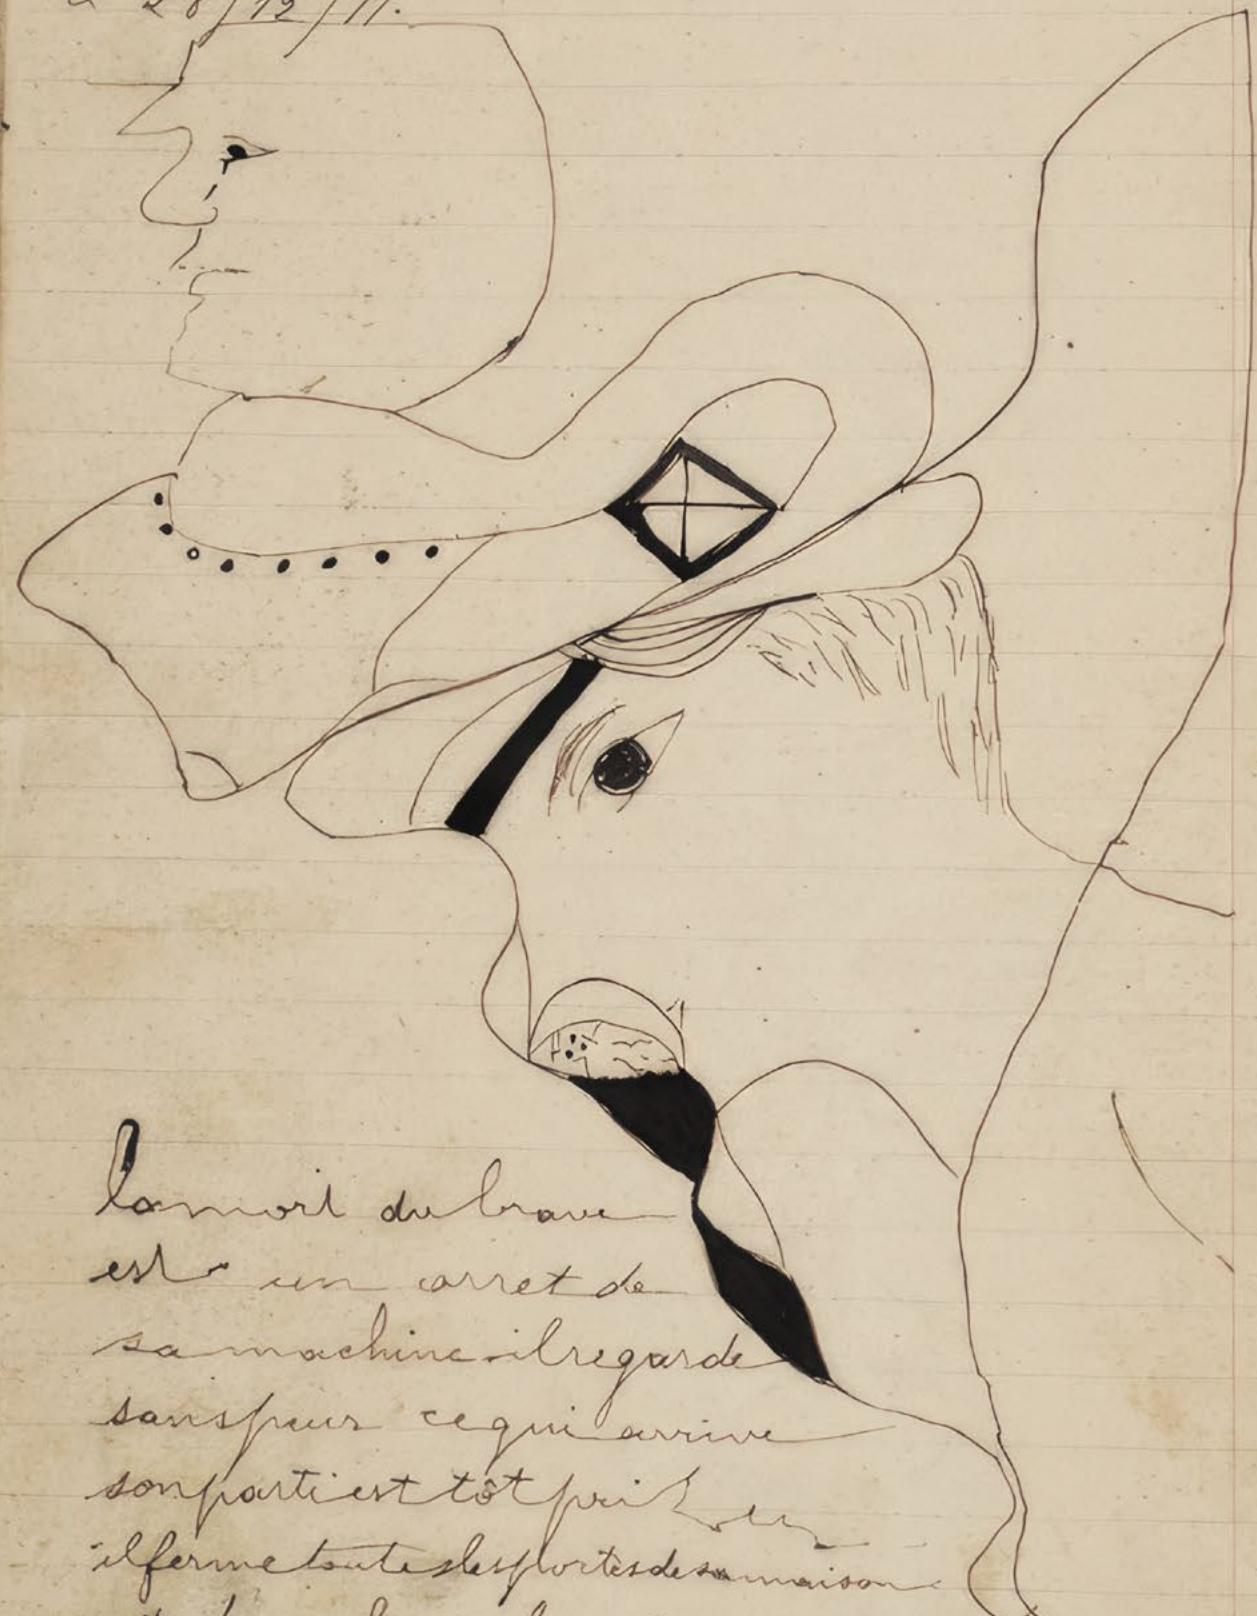 28/12/11.
la mort du brave
est un arret de
sa machine il regarde
sans peur ce qui arrive
son parti est tôt pri
il ferme toutes les portes de sa maison